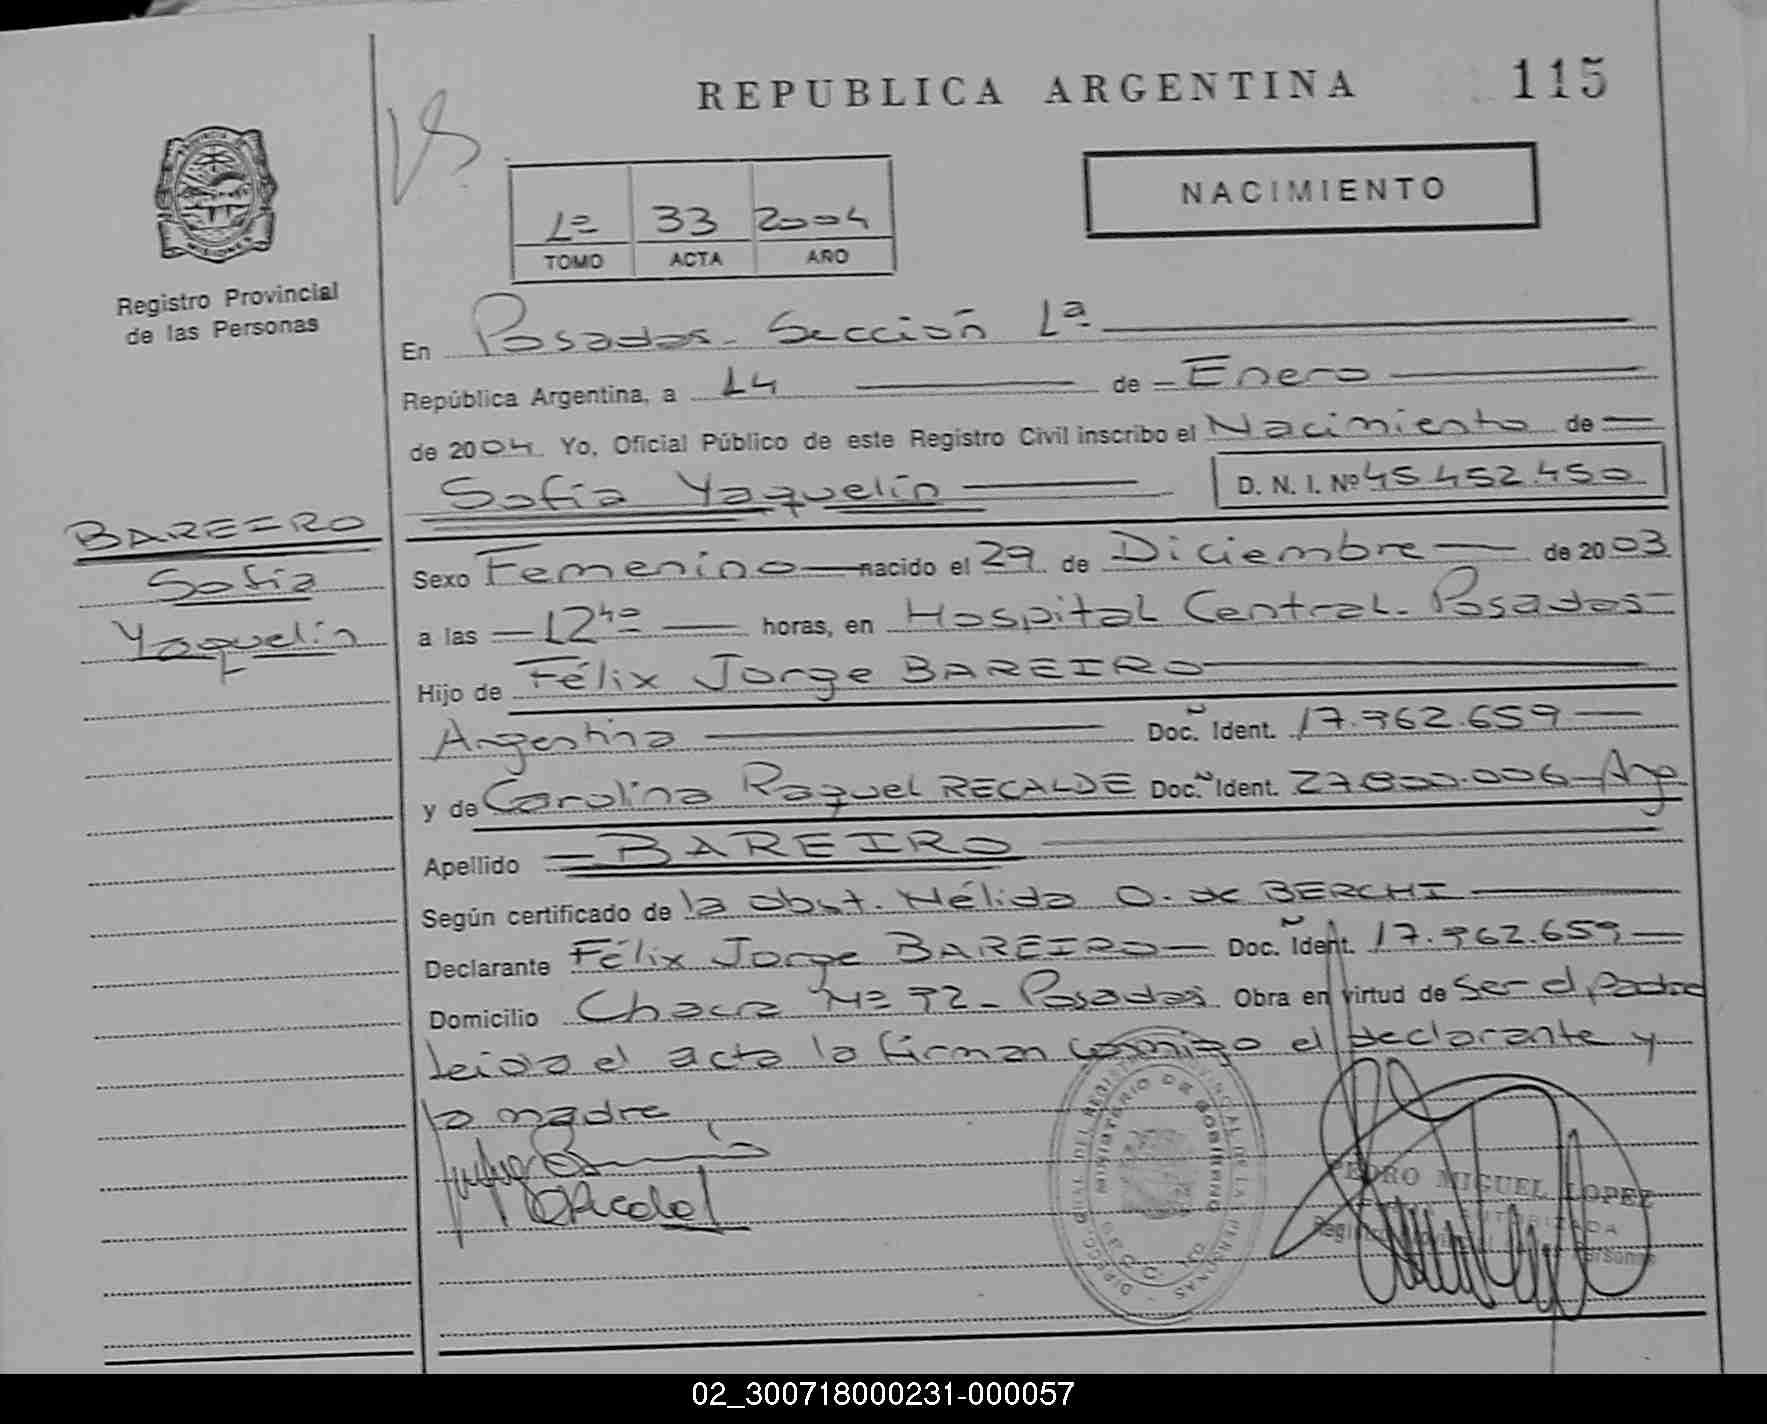 REPUBLICA ARGENTINA 115
NACIMIENTO
1º 33 2004
TOMO ACTA AÑO
Registro Provincial
de las Personas
En Posadas - Sección 1ª
República Argentina, a 14 de Enero
de 2004 Yo, Oficial Público de este Registro Civil inscribo el Nacimiento de
Sofía Yaquelín D. N. I. Nº 45.452.450
BAREIRO
Sofía
Yaquelín
Sexo Femenino nacido el 29 de Diciembre de 2003
a las 12 horas, en Hospital Central - Posadas
Hijo de Félix Jorge BAREIRO
Argentina Doc. Ident. 17.962.659
y de Carolina Raquel RECALDE Doc. Ident. 27.800.006 - Arg
Apellido BAREIRO
Según certificado de la obst. Nélida O. de BERCHI
Declarante Félix Jorge BAREIRO Doc. Ident. 17.962.659
Domicilio Chacra Nº 92 - Posadas Obra en virtud de ser el padre
leida el acta la firman conmigo el declarante y
la madre
PEDRO MIGUEL LOPEZ
02_300718000231-000057